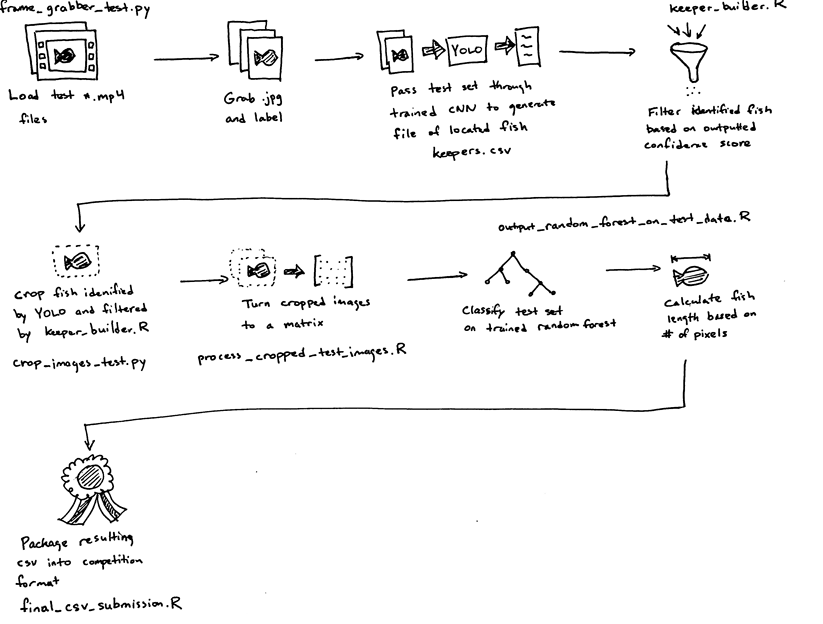 frame_grabber_test.py
Load test *.mp4
files
Grab .jpg
and label
YOLO
Pass test set through
trained CNN to generate
file of located fish
keepers.csv
keeper_builder.R
Filter identified fish
based on outputted
confidence score
crop fish idenified
by YOLO and filtered
by keeper_builder.R
crop_images_test.py
Turn cropped images
to a matrix
process_cropped_test_images.R
output_random_forest_on_test_data.R
Classify test set
on trained random forest
Calculate fish
length based on
# of pixels
Package resulting
csv into competition
format
final_csv_submission.R